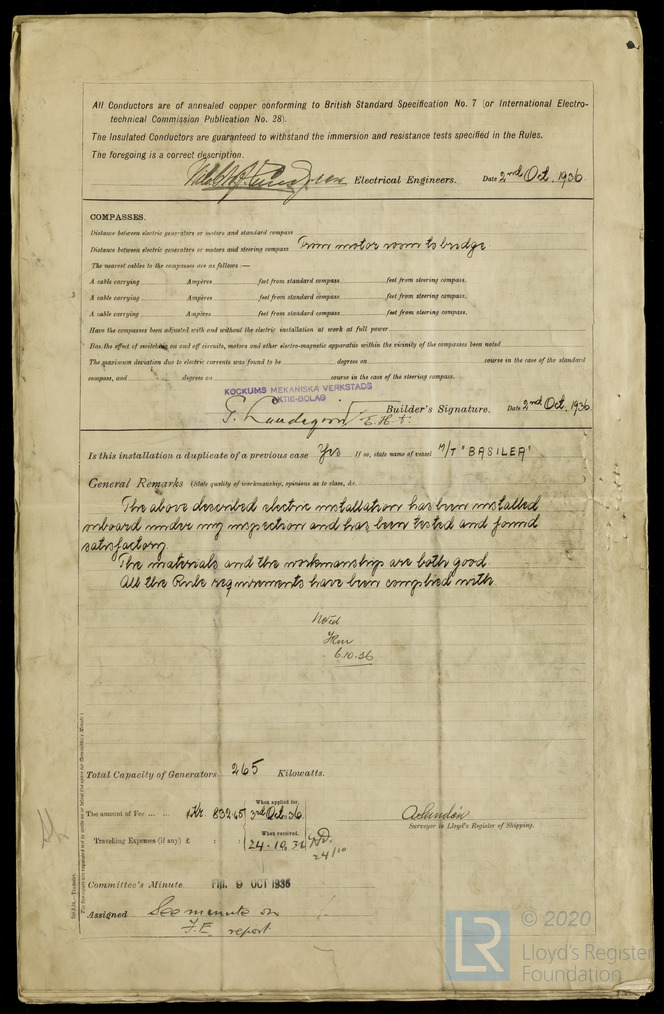 All Conductors are of annealed copper conforming to British Standard Specification No. 7 (or International Electro-
technical Commission Publication No. 28).
The Insulated Conductors are guaranteed to withstand the immersion and resistance tests specified in the Rules.
The foregoing is a correct description.
Electrical Engineers. Date 2nd Oct. 1936.
COMPASSES.
Distance between electric generators or motors and standard compass
Distance between electric generators or motors and steering compass From motor room to bridge.
The nearest cables to the compasses are as follows:—
A cable carrying Ampères feet from standard compass feet from steering compass.
A cable carrying Ampères feet from standard compass feet from steering compass.
A cable carrying Ampères feet from standard compass feet from steering compass.
Have the compasses been adjusted with and without the electric installation at work at full power
Has the effect of switching on and off circuits, motors and other electro-magnetic apparatus within the vicinity of the compasses been noted
The maximum deviation due to electric currents was found to be degrees on course in the case of the standard
compass, and degrees on course in the case of the steering compass.
KOCKUMS MEKANISKA VERKSTADS
AKTIE-BOLAG
Builder's Signature. Date 2nd Oct. 1936
Is this installation a duplicate of a previous case Yes If so, state name of vessel M/T "BASILEA"
General Remarks (State quality of workmanship, opinions as to class, &c.
The above described electric installation has been installed
onboard under my inspection and has been tested and found
satisfactory
The materials and the workmanship are both good.
All the Rule requirements have been complied with.
Noted
6.10.36
Total Capacity of Generators 265 Kilowatts.
When applied for,
The amount of Fee ... ... Kr. 832.45 3rd Oct. 36.
When received,
Travelling Expenses (if any) £ : : 24.10.36
24/10
Surveyor to Lloyd's Register of Shipping.
Committee's Minute FRI. 9 OCT 1936
Assigned See minute on
F.E. report
© 2020
LR
Lloyd's Register
Foundation